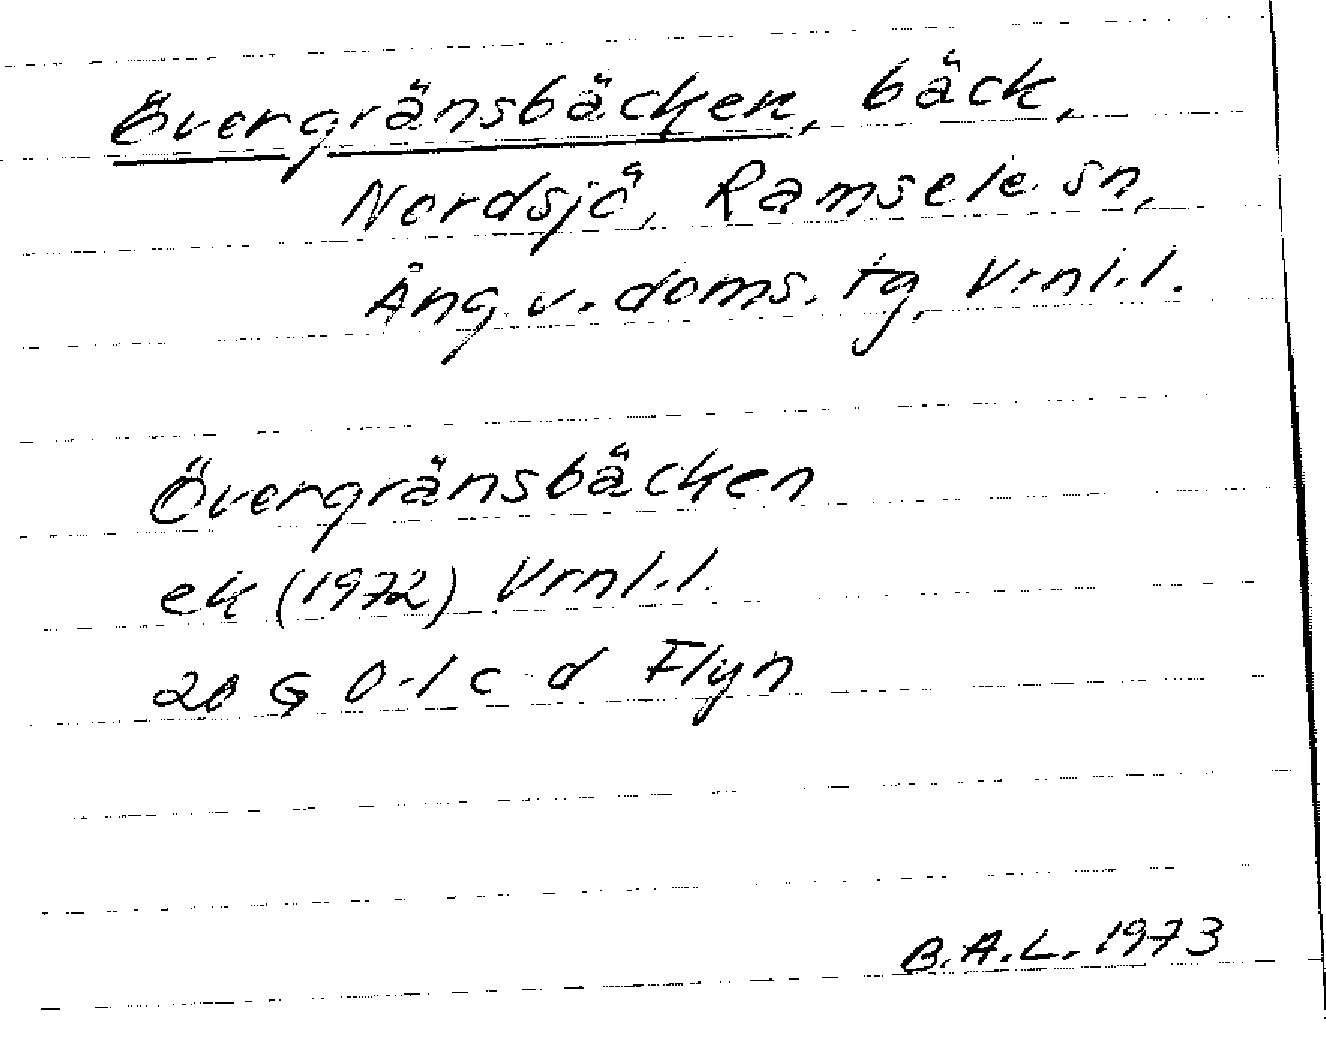 Övergränsbäcken, bäck,
Nordsjö, Ramsele sn,
Ång. v. doms. tg, Vrnl.l.
Övergränsbäcken
ek (1972) Vrnl.l.
20 G 0-1 c d Flyn
B.A.L. 1973